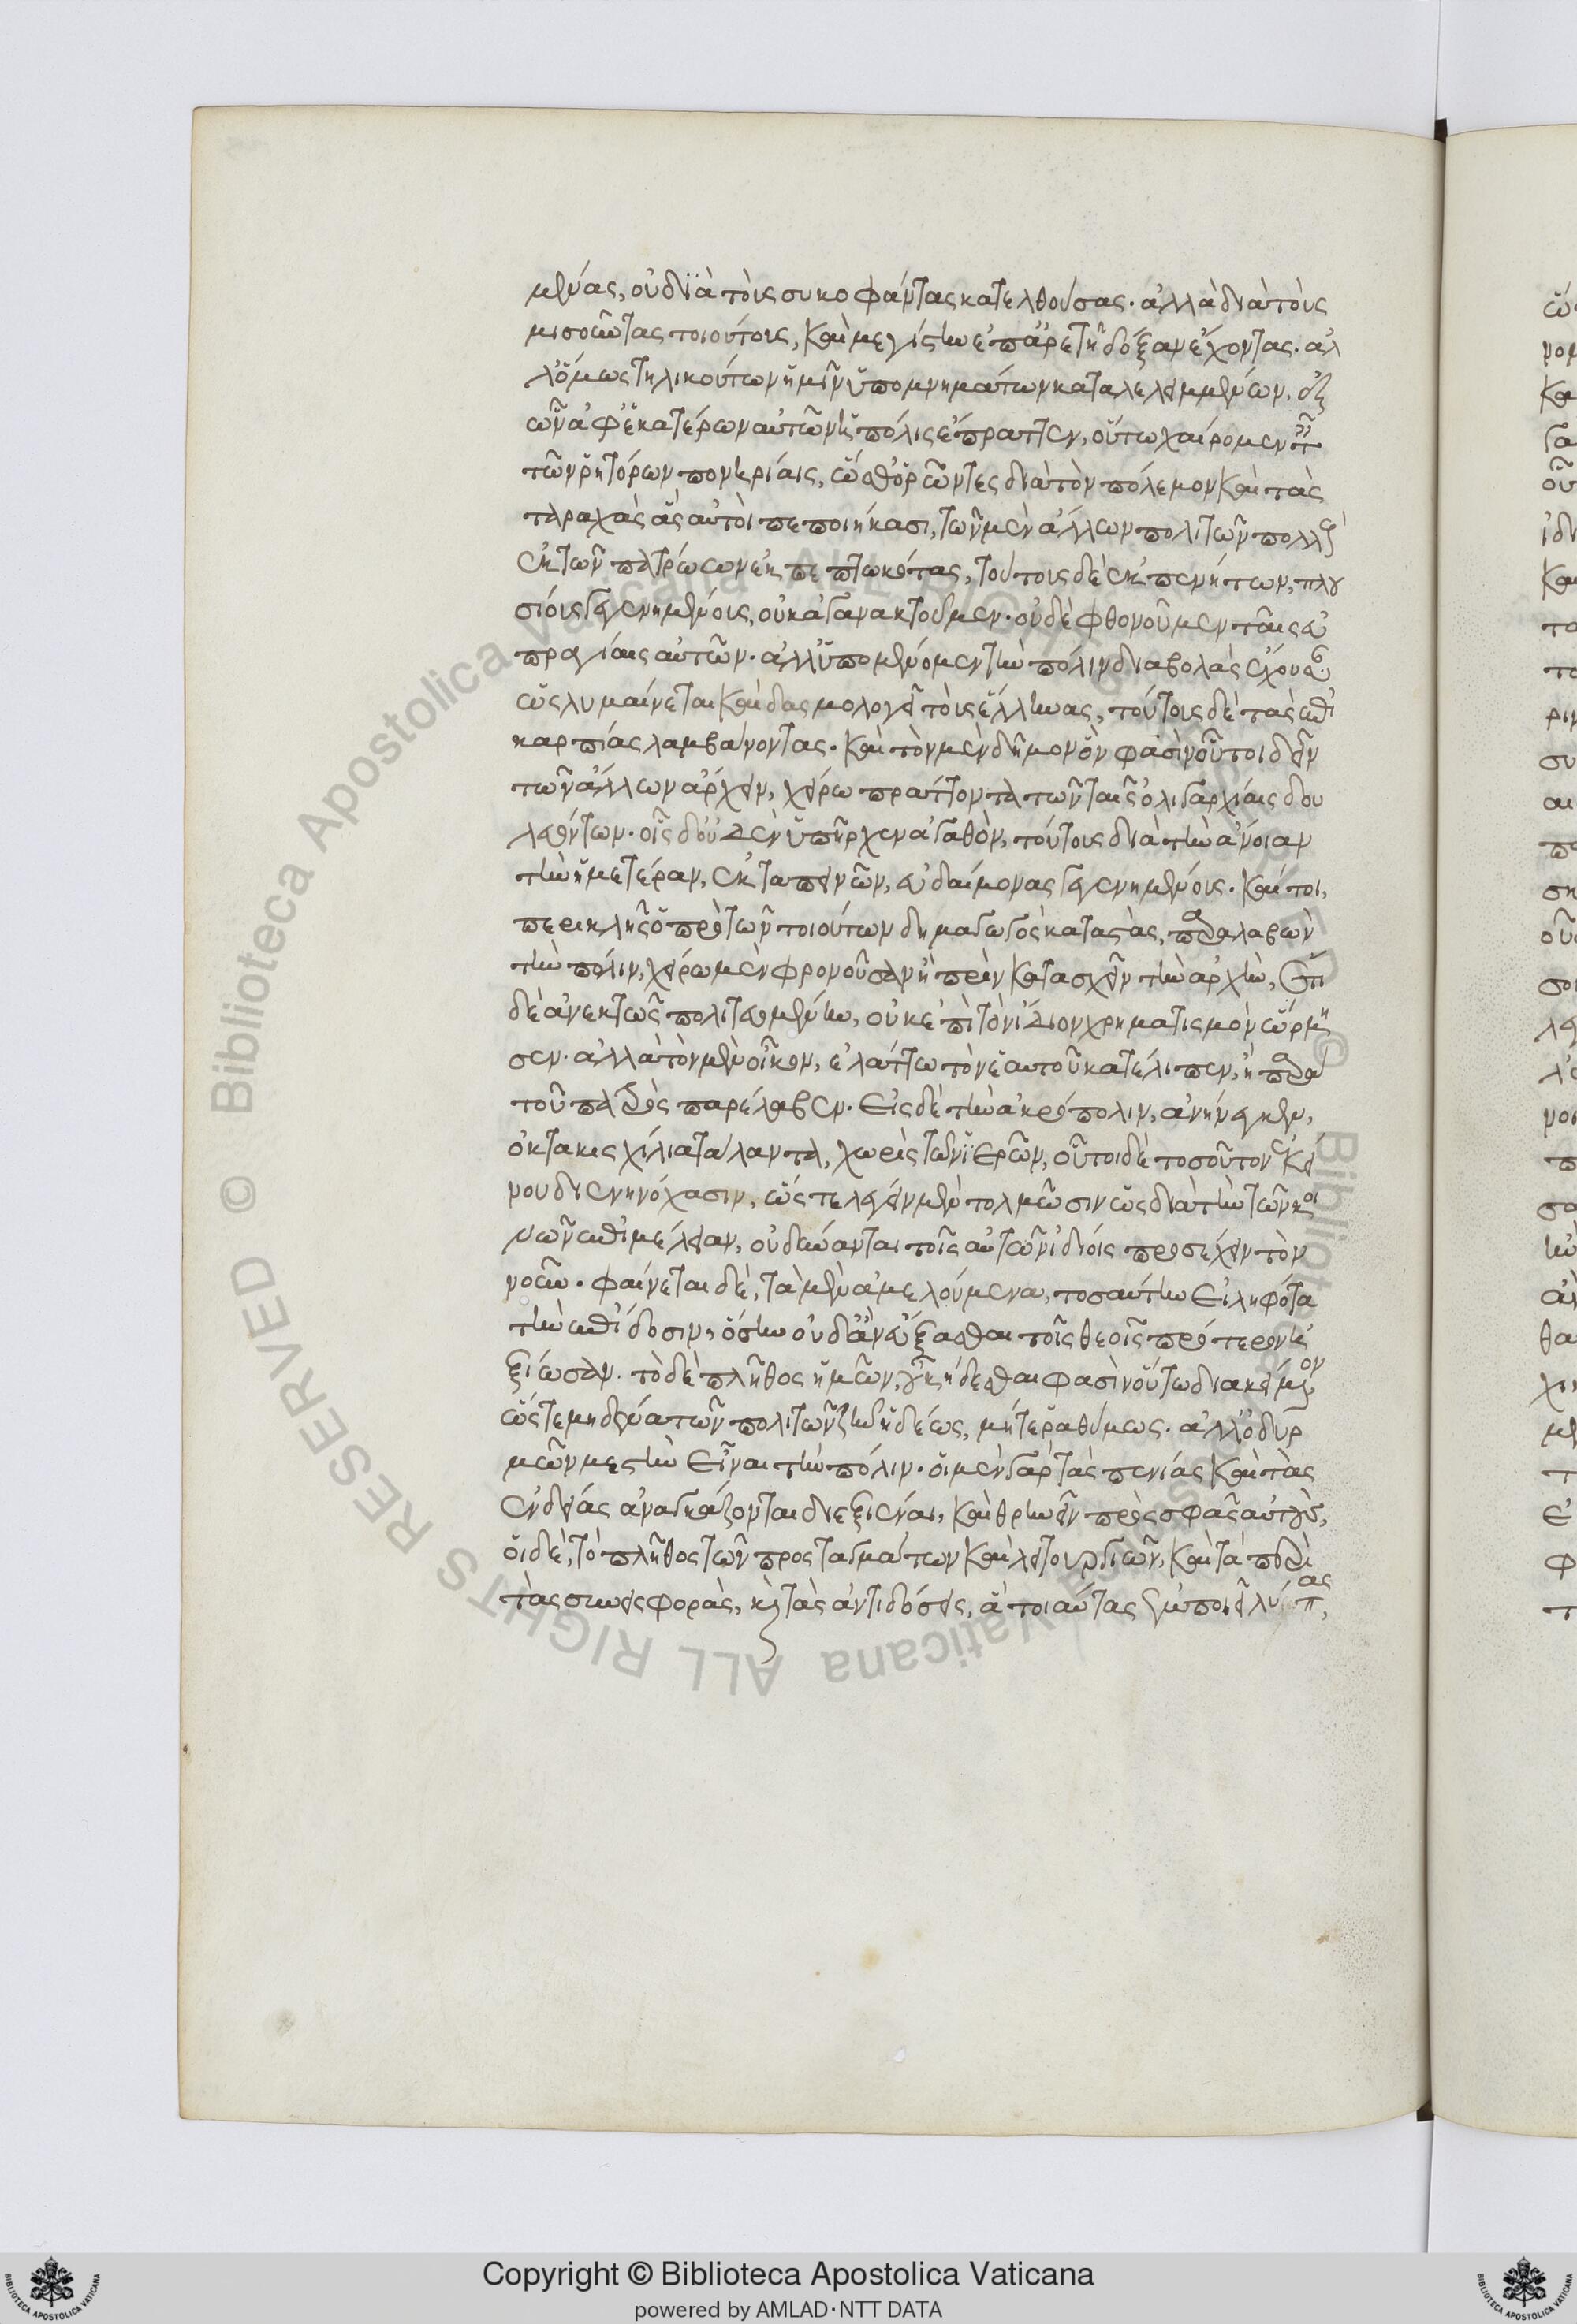 μένας, οὐ διὰ τοὺς συκοφάντας κατελθούσας· ἀλλὰ διὰ τοὺς
μισοῦντας τοιούτους, καὶ μεγίστην ἐπ' ἀρετῇ δόξαν ἔχοντας. ἀλ
λ' ὅμως τηλικούτων ἡμῖν ὑπομνημάτων καταλελειμμένων, ἐξ
ὧν ἀφ' ἑκατέρων αὐτῶν ἡ πόλις ἔπραττεν, οὕτω χαίρομεν ταῖς
τῶν ῥητόρων πονηρίαις, ὥσθ' ὁρῶντες διὰ τὸν πόλεμον καὶ τὰς
ταραχὰς ἃς αὐτοὶ πεποιήκασι, τῶν μὲν ἄλλων πολιτῶν πολλοὺς
ἐκ τῶν πατρώων ἐκπεπτωκότας, τούτους δὲ ἐκ πενήτων, πλου
σίους γεγενημένους, οὐκ ἀγανακτοῦμεν· οὐδὲ φθονοῦμεν ταῖς εὐ
πραγίαις αὐτῶν· ἀλλ' ὑπομένομεν τὴν πόλιν διαβολὰς ἔχουσαν
ὡς λυμαίνεται καὶ δασμολογεῖ τοὺς ἕλληνας, τούτους δὲ τὰς ἐπι
καρπίας λαμβάνοντας. καὶ τὸν μὲν δῆμον ὅν φασὶν οὗτοι δεῖν
τῶν ἄλλων ἄρχειν, χείρω πράττοντα τῶν ταῖς ὀλιγαρχίαις δου
λευόντων. οἷς δ' οὐδὲν ὑπῆρχεν ἀγαθὸν, τούτους διὰ τὴν ἄνοιαν
τὴν ἡμετέραν, ἐκ ταπεινῶν, εὐδαίμονας γεγενημένους. καίτοι,
περικλῆς ὁ πρὸ τῶν τοιούτων δημαγωγὸς καταστὰς, παραλαβὼν
τὴν πόλιν, χεῖρω μὲν φρονοῦσαν ἢ πρὶν κατασχεῖν τὴν ἀρχὴν, ἔτι
δὲ ἀνεκτῶς πολιτευομένην, οὐκ ἐπὶ τὸν ἴδιον χρηματισμὸν ὥρμη
σεν. ἀλλὰ τὸν μὲν οἶκον, ἐλάττω τὸν ἑαυτοῦ κατέλιπεν, ἢ παρὰ
τοῦ πατρὸς παρέλαβεν. εἰς δὲ τὴν ἀκρόπολιν, ἀνήνεγκεν,
ὀκτακισχίλια τάλαντα, χωρὶς τῶν ἱερῶν, οὗτοι δὲ τοσοῦτον ἐκεί
νου διενηνόχασιν, ὥστε λέγειν μὲν τολμῶσιν ὡς διὰ τὴν τῶν κοι
νῶν ἐπιμέλειαν, οὐ δύνανται τοῖς αὑτῶν ἰδίοις προσέχειν τὸν
νοῦν. φαίνεται δὲ, τὰ μὲν ἀμελούμενα, τοσαύτην εἰληφότα
τὴν ἐπίδοσιν, ὅσην οὐδ' ἂν εὔξασθαι τοῖς θεοῖς πρότερον ἠ
ξίωσαν. τὸ δὲ πλῆθος ἡμῶν, οὗ κήδεσθαι φασὶν οὕτω διακείμενον
ὥστε μηδένα τῶν πολιτῶν ζῆν ἡδέως, μήτε ῥαθύμως. ἀλλ' ὀδυρ
μῶν μεστὴν εἶναι τὴν πόλιν. οἱ μὲν γὰρ τὰς πενίας καὶ τὰς
ἐνδείας ἀναγκάζονται διεξιέναι, καὶ θρηνεῖν πρὸς σφᾶς αὐτοὺς,
οἱ δὲ, τὸ πλῆθος τῶν προσταγμάτων καὶ λειτουργιῶν, καὶ τὰ περὶ
τὰς συνεισφορὰς, καὶ τὰς ἀντιδόσεις, ἃ τοιαύτας ἐμποιεῖ λύπας,
Copyright © Biblioteca Apostolica Vaticana
powered by AMLAD·NTT DATA
© Biblioteca Apostolica Vaticana ALL RIGHTS RESERVED